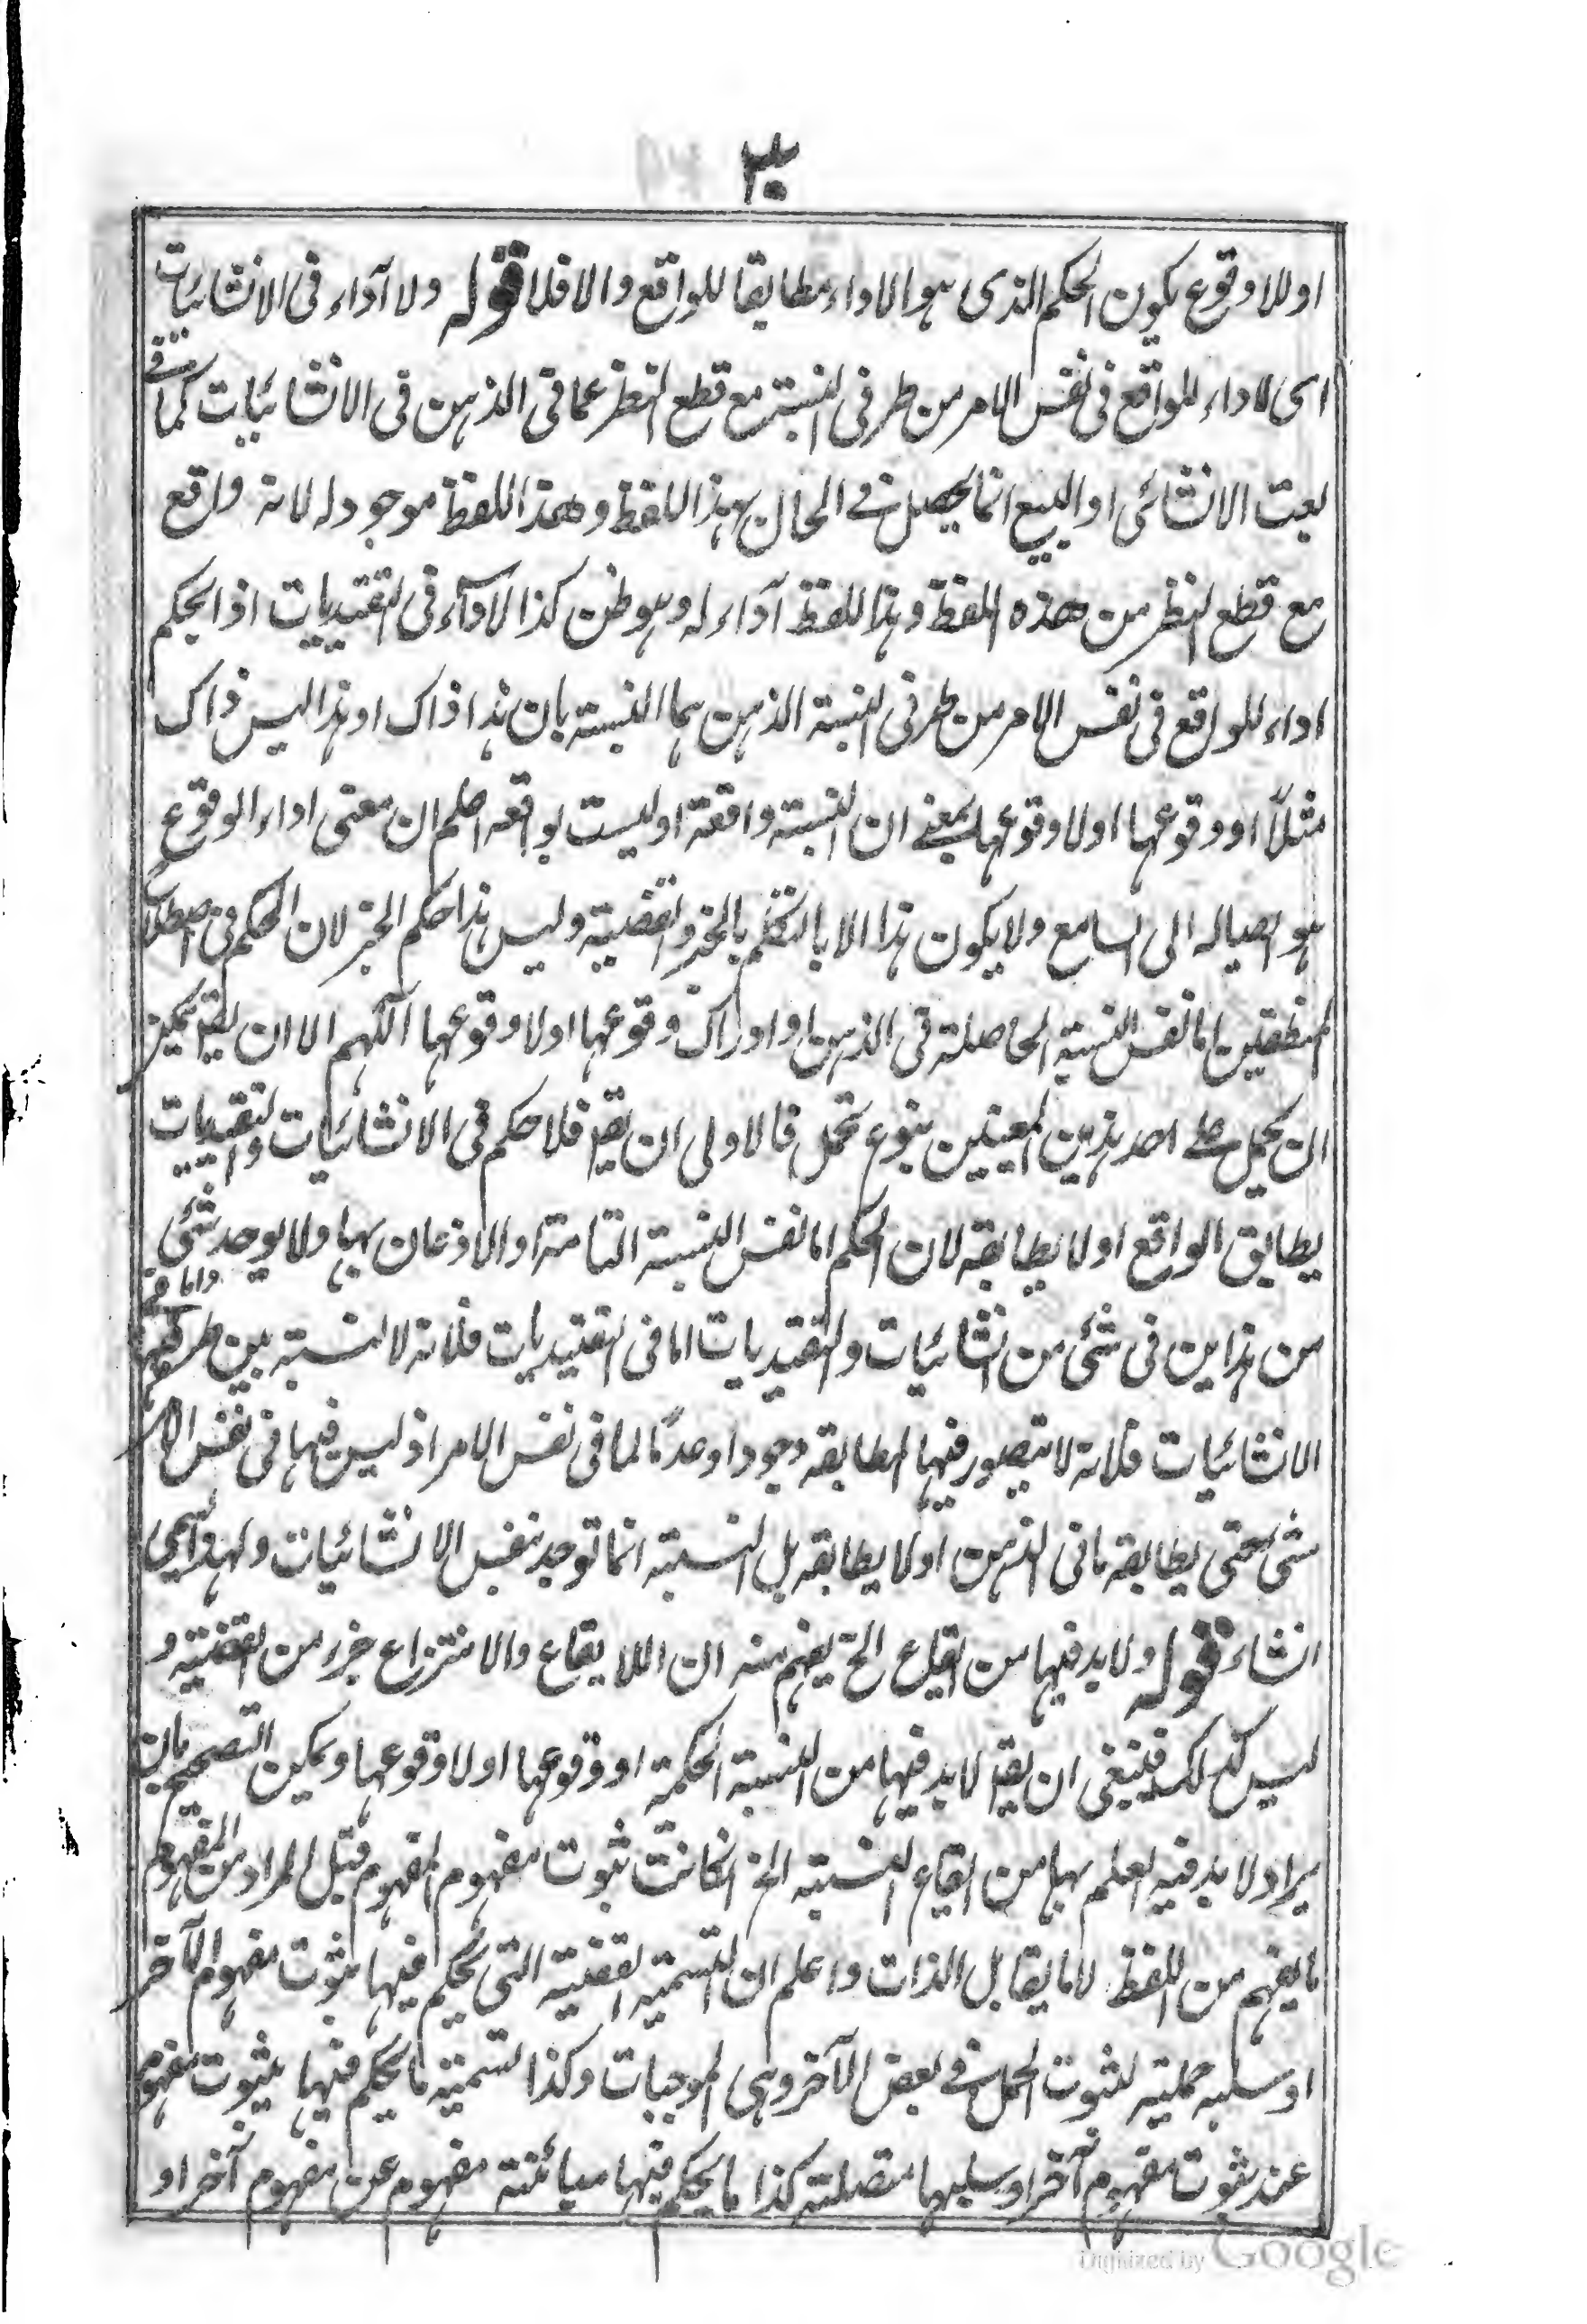 ٣٠
او للاوقوع يكون الحكم الذى هو الاداء مطابقا للواقع والا فلا قوله ولا آداء فى الانشائيات
اى لا اداء للواقع فى نفس الامر من طرفى النسبة مع قطع النظر عما فى الذهن فى الانشائيات كما فى
بعت الانشائى او البيع انما يحصل فى الحال بهذا اللفظ وهذا اللفظ موجود له لا انه واقع
مع قطع النظر من هذه اللفظ وهذا اللفظ آداء له وهو ظن كذا لا آداء فى التقييديات اذ الحكم
اداء للواقع فى نفس الامر من طرفى النسبة الذهن هما النسبة بان هذا ذاك او هذا ليس ذاك
مثلاً او وقوعها او لاوقوعها بمعنى ان النسبة واقعة او ليست بواقعه اعلم ان معنى اداء الوقوع
هو ايصاله الى السامع ولا يكون هذا الا بالتكلم بالخبر والقضية وليس هذا حكم الخبر لان الحكم فى اصطلاح
المنطقيين اما نفس النسبة الحاصلة فى الذهن او ادراك وقوعها او لاوقوعها اللهم الا ان يقر يمكن
ان يحمل على احد هذين المعنيين بنوع تحمل فالاولى ان يقر فلا حكم فى الانشائيات والتقييديات
يطابق الواقع او لا يطابقه لان الحكم اما نفس النسبة التامة او الاذعان بها ولا يوجد شئ
من هذين فى شئ من انشائيات والتقييديات اما فى التقييديات فلانه لا نسبة بين طرفيها واما فى
الانشائيات فلانه لا يتصور فيها المطابقه وجودا وعدمًا لما فى نفس الامر اذ ليس فيها فى نفس الامر
شئ حتى يطابقه ما فى الذهن او لا يطابقه بل النسبة انما توجد بنفس الانشائيات ولهذا سمى
انشاء قوله ولا بد فيها من ايقاع الخ يفهم منه ان اللايقاع والانتزاع جزء من القضية و
ليس كذلك فينبغى ان يقر لا بد فيها من النسبة الحكمية او وقوعها او لاوقوعها ويمكن التصحيح بان
يراد ولا بد فيه العلم بها من ايقاع النسبة الخ انكانت ثبوت مفهوم لمفهوم قيل المراد من المفهوم
ما يفهم من اللفظ لا ما يقابل الذات واعلم ان التسمية القضية التى يحكم فيها بثبوت مفهوم لآخر
او سلبه حملية لثبوت الحمل فى بعض الآخر وهى الموجبات وكذا تسمية ما يحكم فيها بثبوت مفهوم
عند ثبوت مفهوم آخر او سلبها متصلة كذا ما يحكم فيها مبائنة مفهوم عن مفهوم آخر او
Digitized by Google